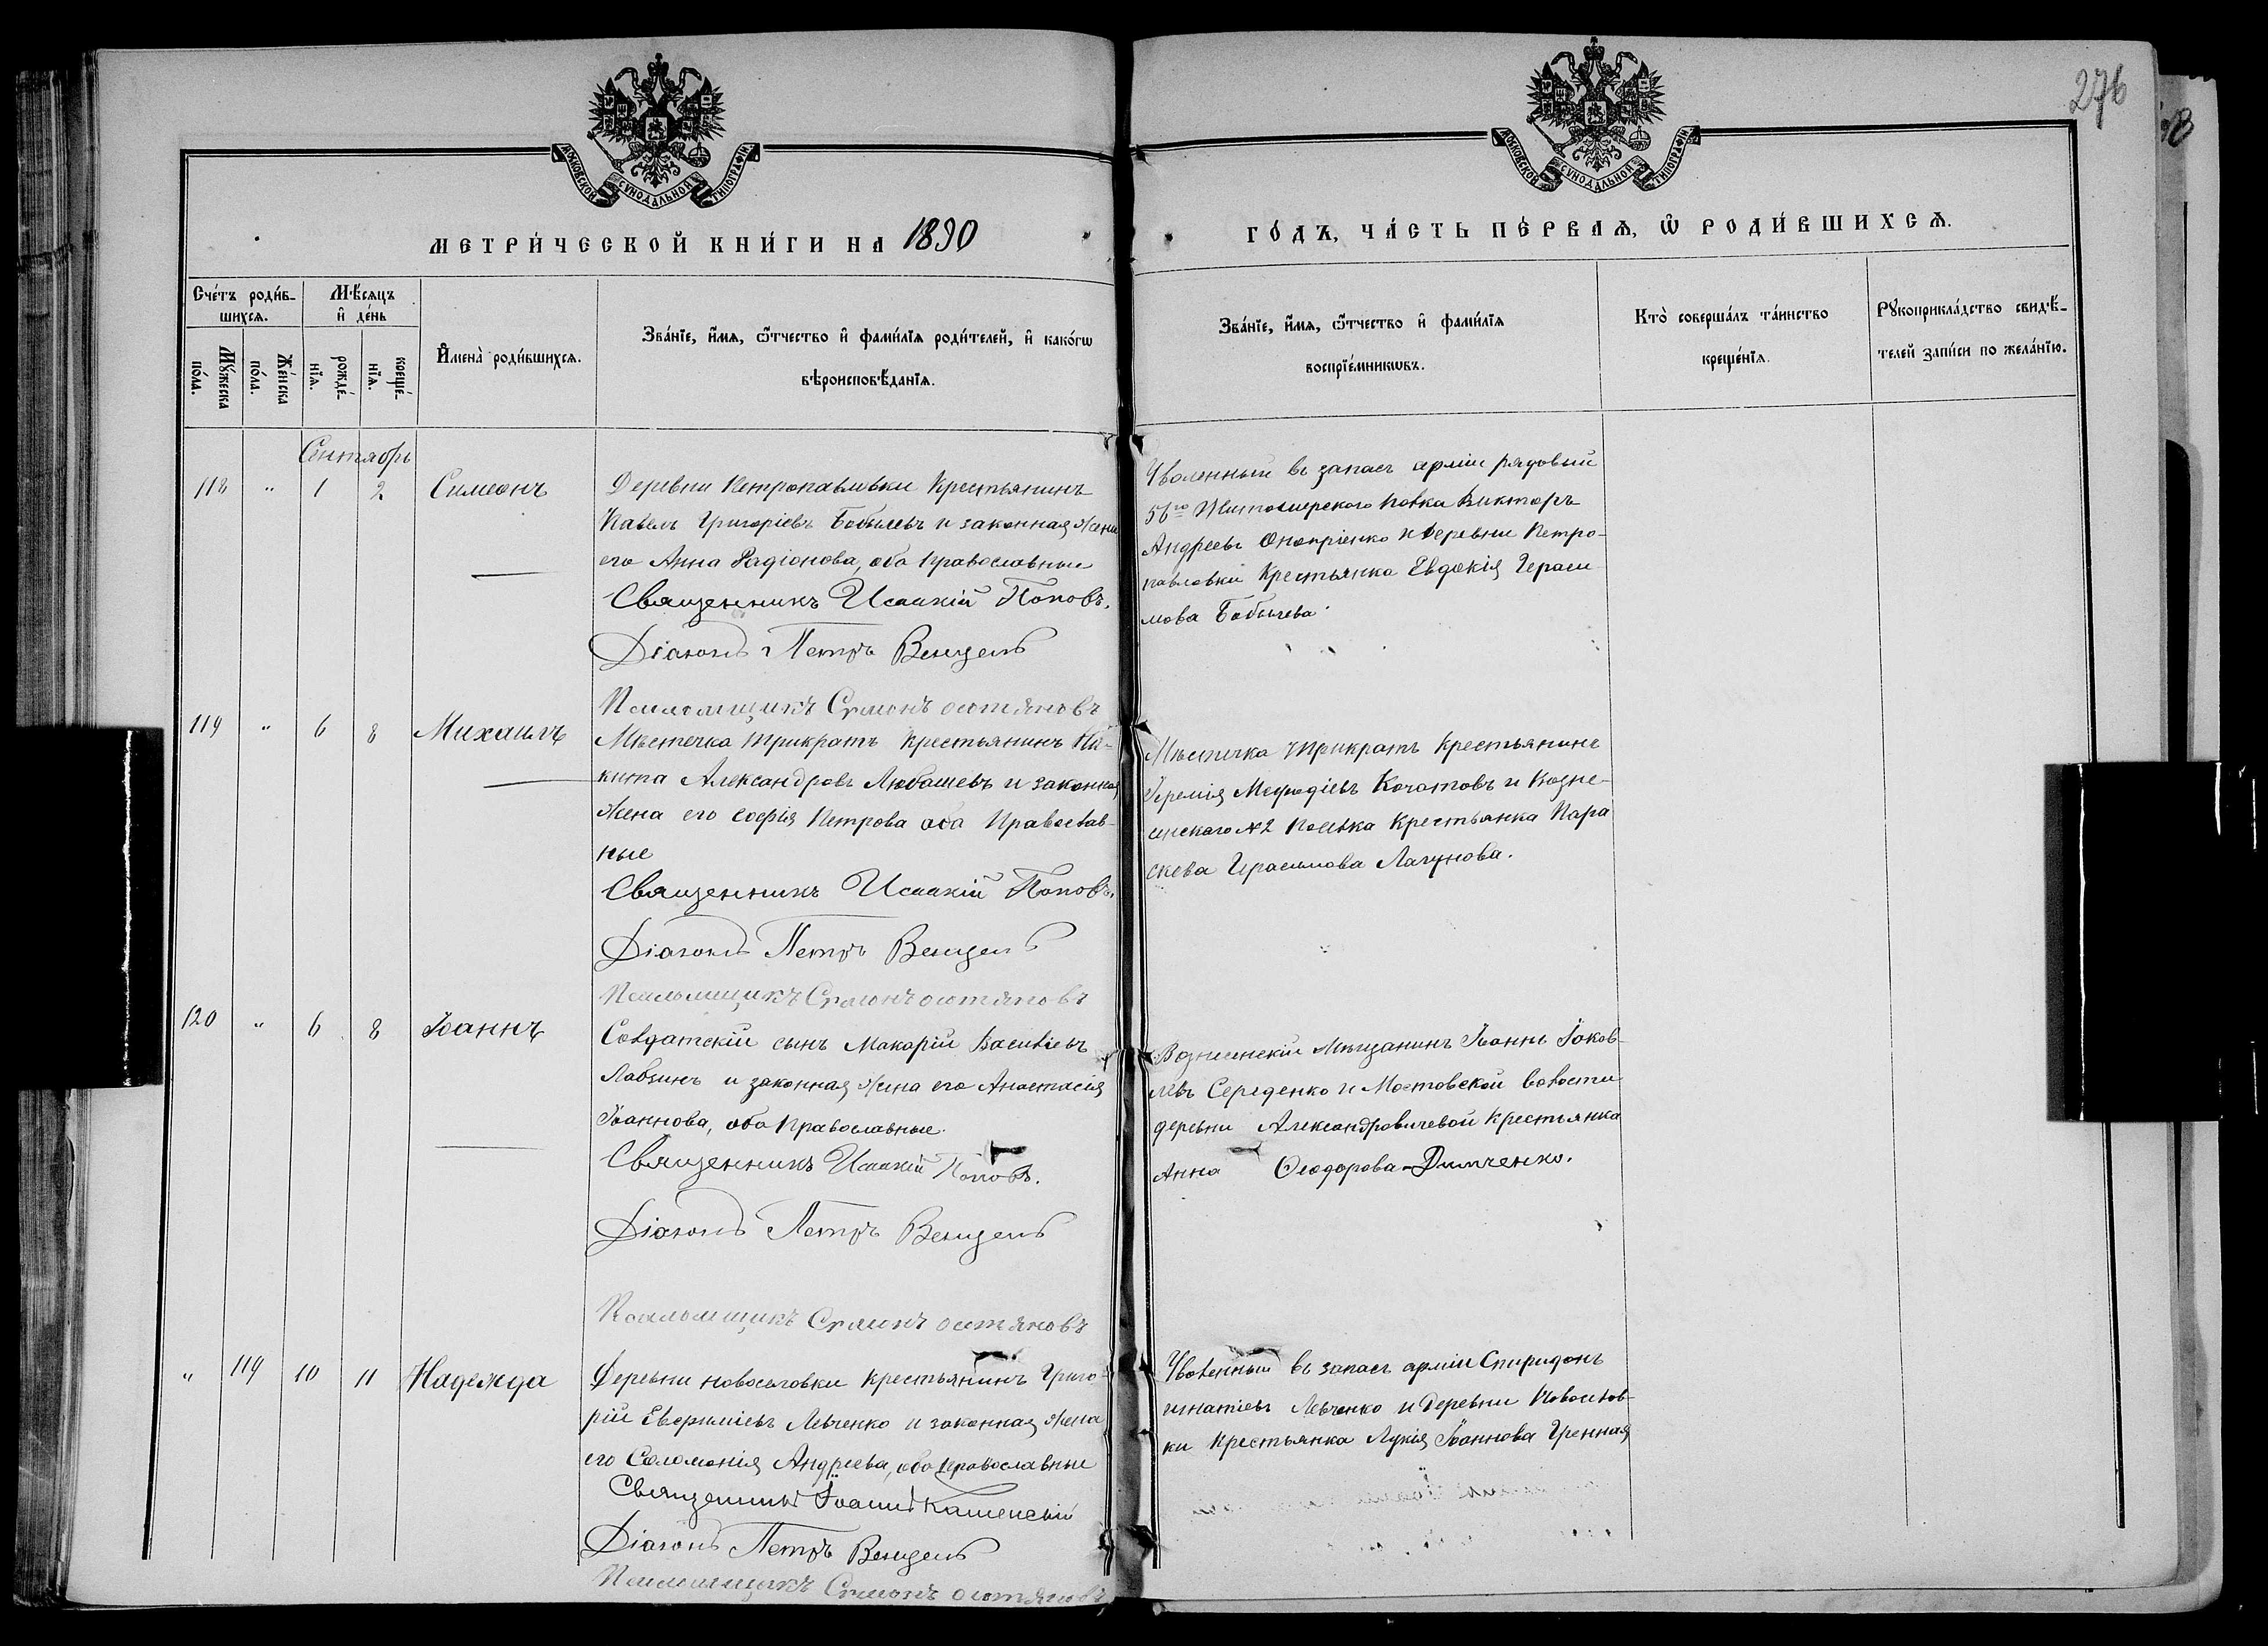 276
МОСКОВСКОЙ СУНОДАЛЬНОЙ ТИПОГРАФІИ
МОСКОВСКОЙ СУНОДАЛЬНОЙ ТИПОГРАФІИ
МЕТРИ́ЧЕСКОЙ КНИ́ГИ НА 1890
ГО́ДЪ, ЧА́СТЬ ПЕ́РВАѦ, Ѡ҆ РОДИ́ВШИХСѦ.
Сче́тъ роди́в-
шихсѧ.
Мꙋ́жеска
по́ла.
Же́нска
по́ла.
Мѣ́сѧцъ
и҆ де́нь
рожде́-
нїѧ.
креще́-
нїѧ.
И҆мена̀ роди́вшихсѧ.
Зва́нїе, и҆́мѧ, ѻ҆́тчество и҆ фами́лїѧ роди́телей, и҆ како́гѡ
вѣроисповѣ́данїѧ.
Зва́нїе, и҆́мѧ, ѻ҆́тчество и҆ фами́лїѧ
воспрїе́мникѡвъ.
Кто̀ соверша́лъ та́инство
креще́нїѧ.
Рꙋкоприкла́дство свидѣ́-
телей за́писи по жела́нїю.
Сентябрь
118 " 1 2 Симеонъ
Деревни Петропавловки Крестьянинъ
Павелъ Григоріевъ Бобылевъ и законная жена
его Анна Радіонова, оба православные
Священникъ Исаакій Поповъ.
Діаконъ Петръ Венцель
Псаломщикъ Симонъ
Уволенный въ запасъ арміи рядовый
56го Житомирского полка Викторъ
Андреевъ Оноприенко и деревни Петро-
павловки Крестьянка Евдокія Гераси
мова Бобылева
119 " 6 8 Михаилъ
Мѣстечка Трикратъ Крестьянинъ Ни-
кита Александровъ Любашевъ и законная
жена его Софія Петрова оба Православ-
ные
Священникъ Исаакій Поповъ.
Діаконъ Петръ Венцель
Псаломщикъ Симонъ
Мѣстечка Трикратъ Крестьянинъ
Іеремія Мефодіевъ Кочатовъ и Возне-
сенского №2 Поселка Крестьянка Пара
скева Герасимова Лагунова.
120 " 6 8 Іоаннъ
Солдатскій сынъ Макарій Василіевъ
Лавзинъ и законная жена его Анастасія
Іоаннова, оба Православные.
Священникъ Исаакій Поповъ.
Діаконъ Петръ Венцель
Псаломщикъ Симонъ
Вознесенскій Мѣщанинъ Іоаннъ Іаков-
левъ Середенко и Мостовской волости
деревни Александровичевой Крестьянка
Анна Ѳеодорова Димченко.
" 119 10 11 Надежда
Деревни Новоселовки Крестьянинъ Григо-
рій Евфиміевъ Левченко и законная жена
его Соломонія Андреева, оба православные
Священникъ Іоаннъ Каменскій
Діаконъ Петръ Венцель
Псаломщикъ Симонъ
Уволенный въ запасъ арміи Спиридонъ
Игнатіевъ Левченко и деревни Новоселов-
ки Крестьянка Лукія Іоаннова Гренная